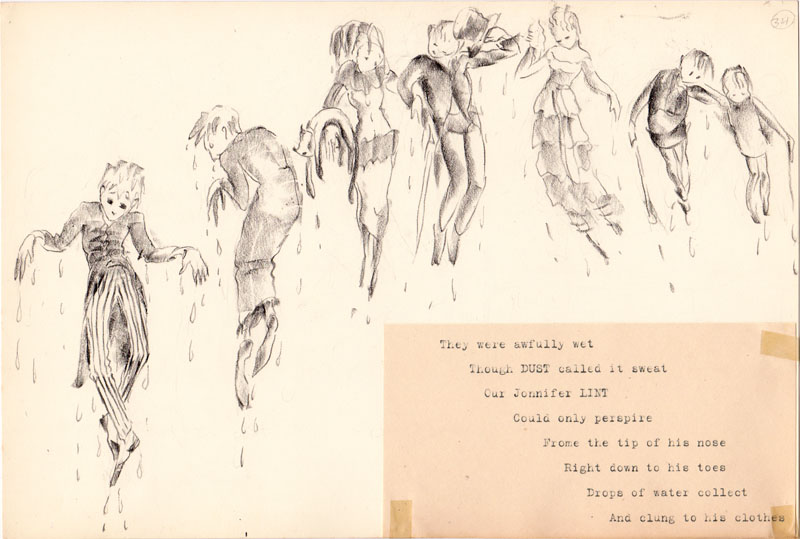 34
They were awfully wet
Though DUST called it sweat
Our Jonnifer LINT
Could only perspire
Frome the tip of his nose
Right down to his toes
Drops of water collect
And clung to his clothes